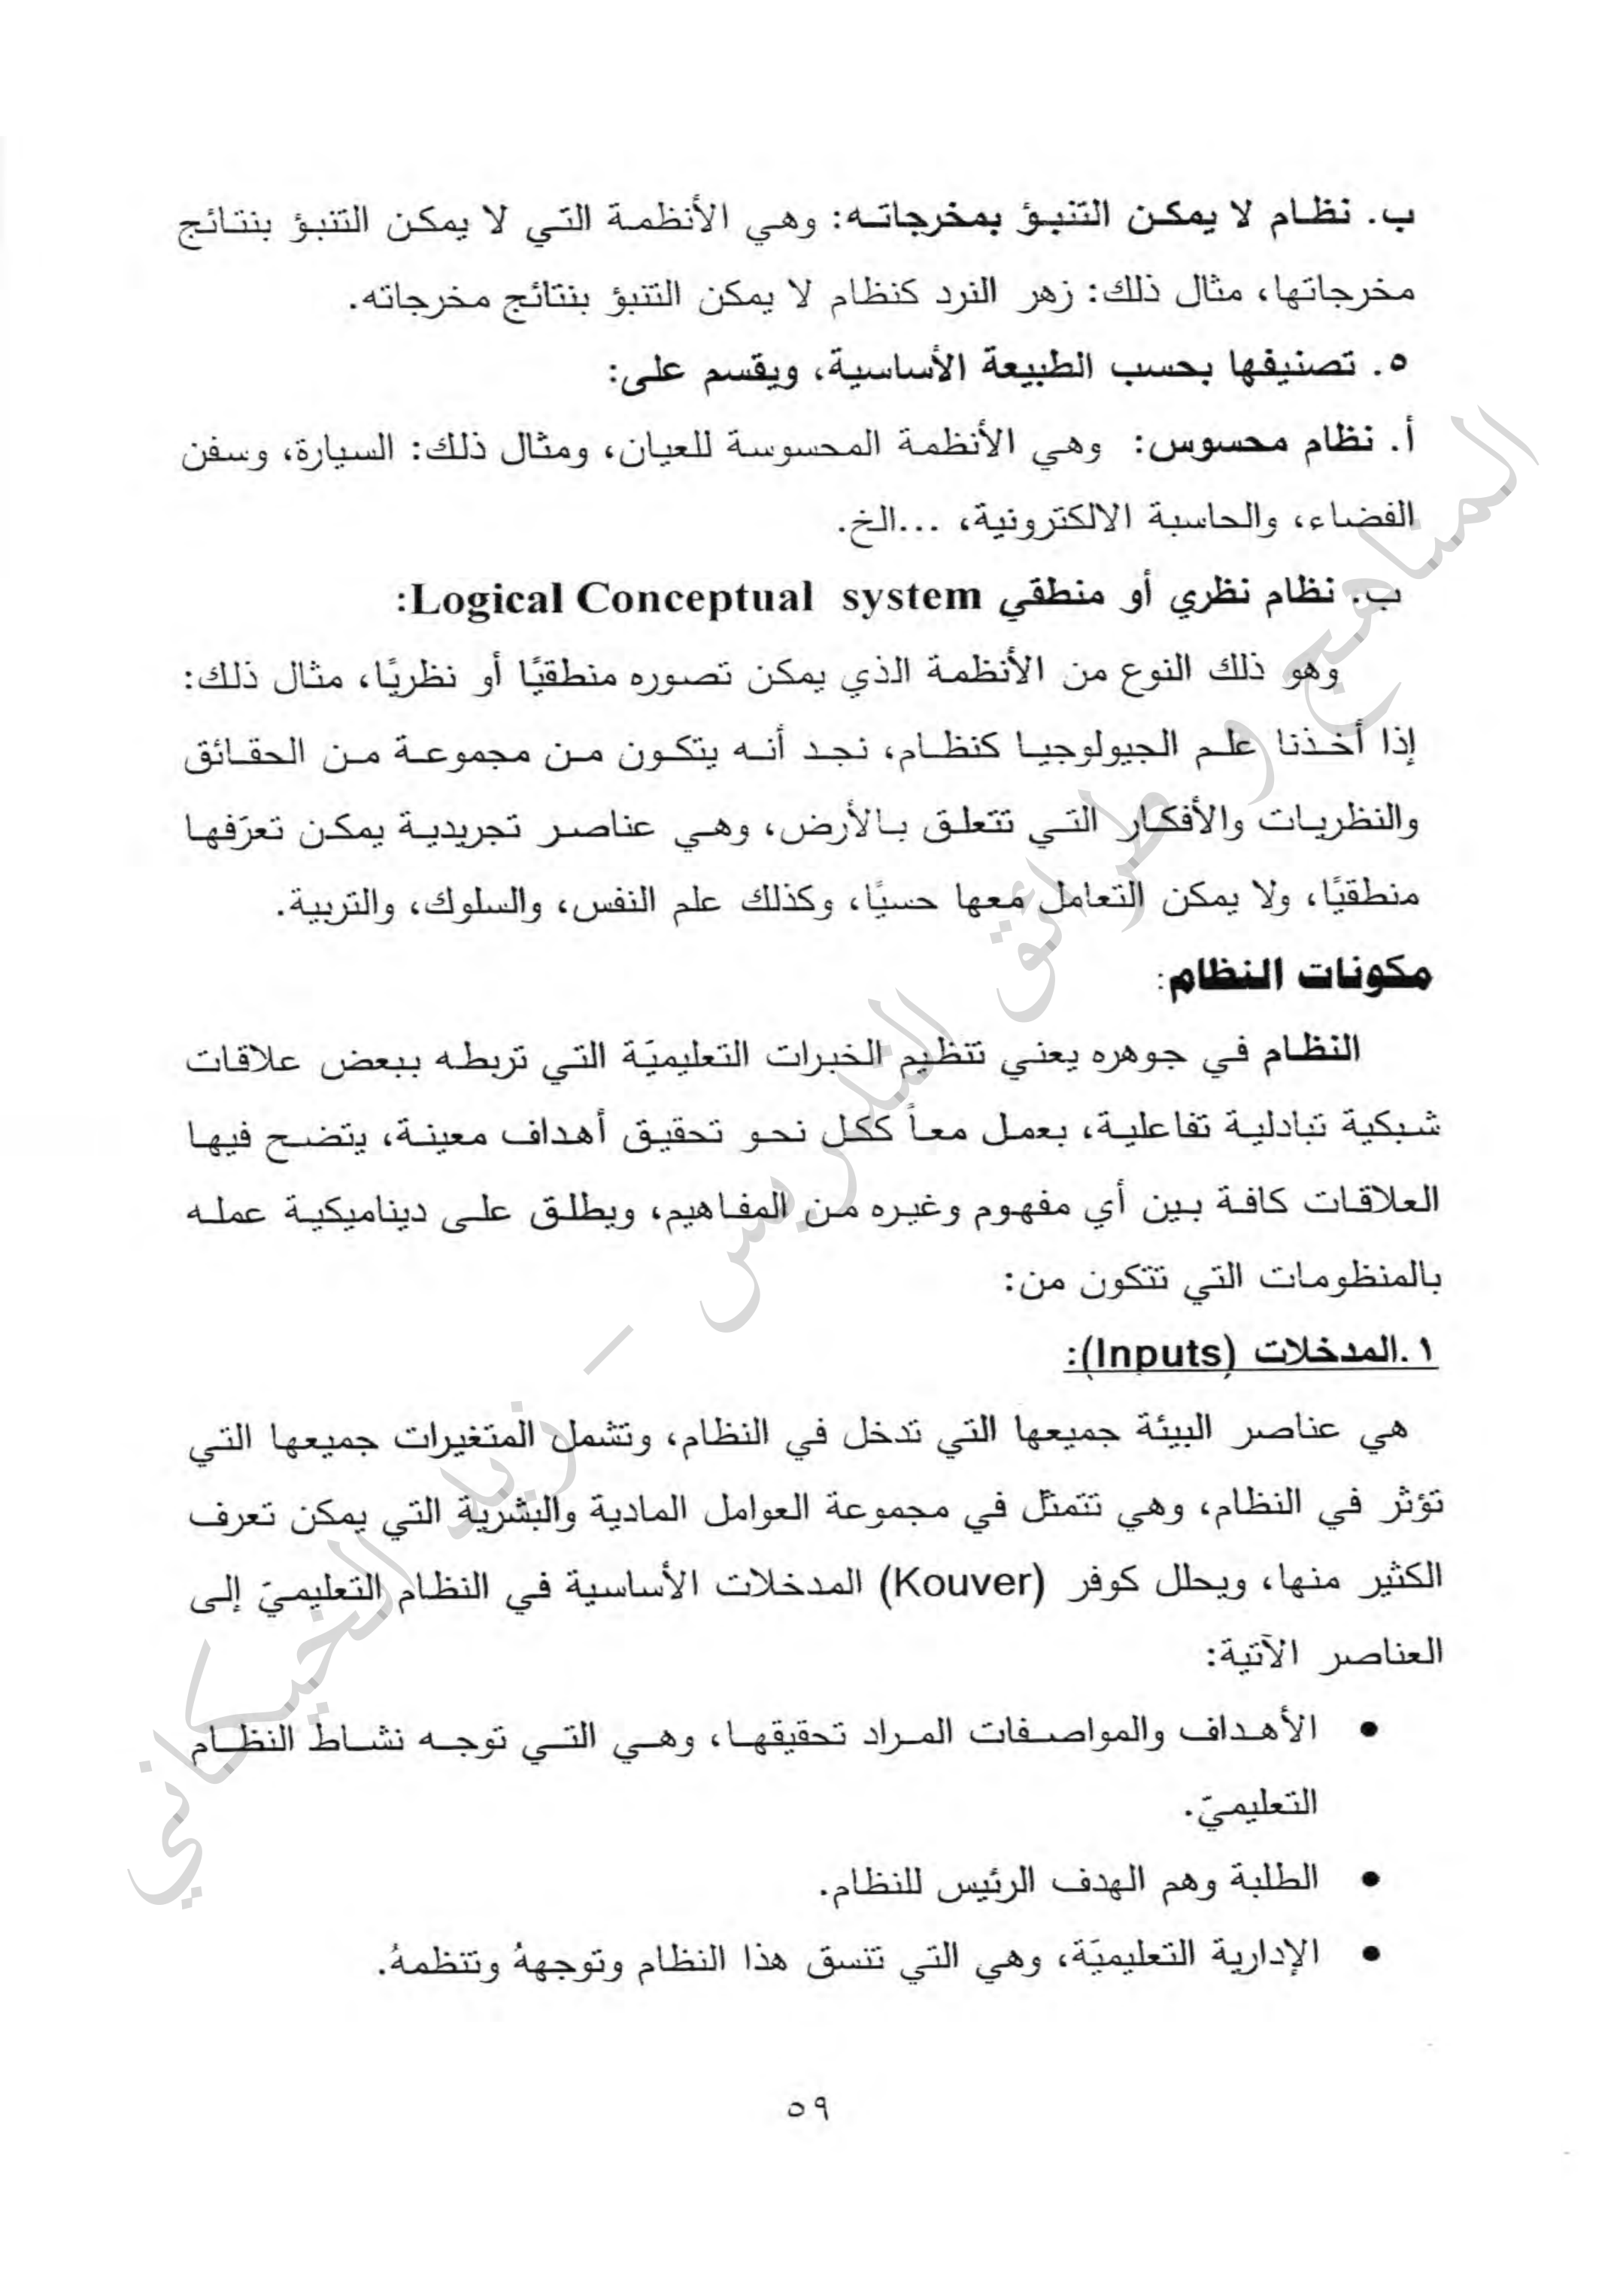 ب. نظام لا يمكن التنبؤ بمخرجاته: وهي الأنظمة التي لا يمكن التنبؤ بنتائج
مخرجاتها، مثال ذلك: زهر النرد كنظام لا يمكن التنبؤ بنتائج مخرجاته.
٥. تصنيفها بحسب الطبيعة الأساسية، ويقسم على:
أ. نظام محسوس: وهي الأنظمة المحسوسة للعيان، ومثال ذلك: السيارة، وسفن
الفضاء، والحاسبة الالكترونية، ...الخ.
ب. نظام نظري أو منطقي Logical Conceptual system:
وهو ذلك النوع من الأنظمة الذي يمكن تصوره منطقيًا أو نظريًا، مثال ذلك:
إذا أخذنا علم الجيولوجيا كنظام، نجد أنه يتكون من مجموعة من الحقائق
والنظريات والأفكار التي تتعلق بالأرض، وهي عناصر تجريدية يمكن تعرّفها
منطقيًا، ولا يمكن التعامل معها حسيًا، وكذلك علم النفس، والسلوك، والتربية.
مكونات النظام:
النظام في جوهره يعني تنظيم الخبرات التعليميّة التي تربطه ببعض علاقات
شبكية تبادلية تفاعلية، بعمل معاً ككل نحو تحقيق أهداف معينة، يتضح فيها
العلاقات كافة بين أي مفهوم وغيره من المفاهيم، ويطلق على ديناميكية عمله
بالمنظومات التي تتكون من:
١.المدخلات (Inputs):
هي عناصر البيئة جميعها التي تدخل في النظام، وتشمل المتغيرات جميعها التي
تؤثر في النظام، وهي تتمثل في مجموعة العوامل المادية والبشرية التي يمكن تعرف
الكثير منها، ويحلل كوفر (Kouver) المدخلات الأساسية في النظام التعليميّ إلى
العناصر الآتية:
• الأهداف والمواصفات المراد تحقيقها، وهي التي توجه نشاط النظام
التعليميّ.
• الطلبة وهم الهدف الرئيس للنظام.
• الإدارية التعليميّة، وهي التي تنسق هذا النظام وتوجههُ وتنظمهُ.
٥٩
المناهج و طرائق التدريس – زياد الخيكاني